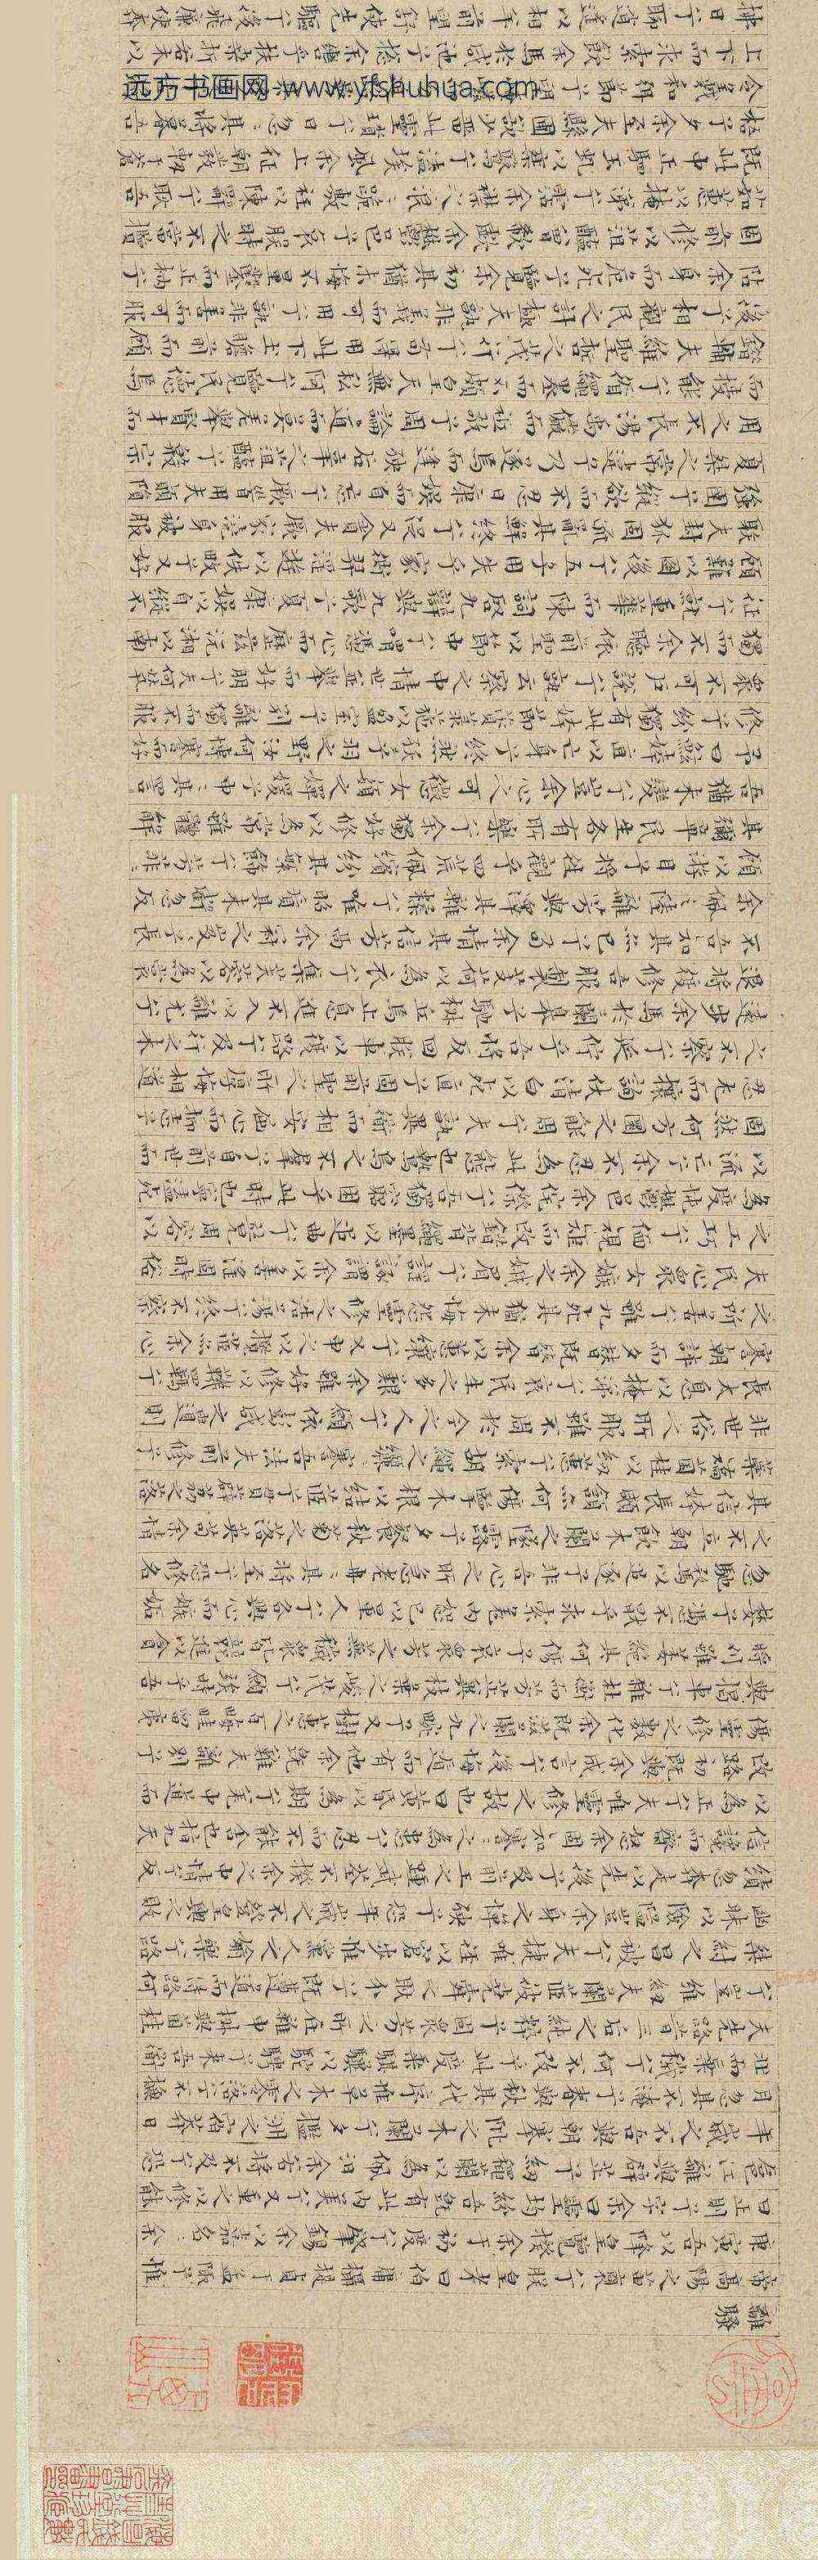 離騷
帝高陽之苗裔兮朕皇考曰伯庸攝提貞于孟陬兮惟
庚寅吾以降皇覽揆余于初度兮肇錫余以嘉名名余
曰正則兮字余曰靈均紛吾既有此內美兮又重之以修能
扈江離與辟芷兮紉秋蘭以為佩汨余若將不及兮恐
年歲之不吾與朝搴阰之木蘭兮夕攬洲之宿莽日
月忽其不淹兮春與秋其代序惟草木之零落兮不撫
壯而棄穢兮何不改乎此度乘騏驥以馳騁兮來吾導
夫先路昔三后之純粹兮固眾芳之所在雜申椒與菌桂
兮豈維紉夫蕙茞彼堯舜之耿介兮既遵道而得路何
桀紂之昌披兮夫唯捷徑以窘步惟黨人之偷樂兮路
幽昧以險隘豈余身之憚殃兮恐皇輿之敗
績忽奔走以先後兮及前王之踵武荃不揆余之中情兮反
信讒而齌怒余固知謇謇之為患兮忍而不能舍也指九天
以為正兮夫唯靈修之故也曰黃昏以為期兮羌中道而
改路初既與余成言兮後悔遁而有他余既不難夫離別兮
傷靈修之數化余既滋蘭之九畹兮又樹蕙之百畝畦留夷
與揭車兮雜杜衡與芳芷冀枝葉之峻茂兮願竢時乎吾
將刈雖萎絕其亦何傷兮哀眾芳之蕪穢眾皆競進以貪
婪兮憑不厭乎求索羌內恕己以量人兮各興心而嫉妒
忽馳騖以追逐兮非余心之所急老冉冉其將至兮恐修名
之不立朝飲木蘭之墜露兮夕餐秋菊之落英苟余情
其信姱以練要兮長顑頷亦何傷擥木根以結茞兮貫薜荔之落
蕊矯菌桂以紉蕙兮索胡繩之纚纚謇吾法夫前修兮
非世俗之所服雖不周於今之人兮願依彭咸之遺則
長太息以掩涕兮哀民生之多艱余雖好修姱以鞿羈兮
謇朝誶而夕替既替余以蕙纕兮又申之以攬茞亦余心
之所善兮雖九死其猶未悔怨靈修之浩蕩兮終不察
夫民心眾女嫉余之蛾眉兮謠諑謂余以善淫固時俗
之工巧兮偭規矩而改錯背繩墨以追曲兮競周容以
為度忳鬱邑余侘傺兮吾獨窮困乎此時也寧溘死
以流亡兮余不忍為此態也鷙鳥之不群兮自前世而
固然何方圜之能周兮夫孰異道而相安屈心而抑志兮
忍尤而攘詬伏清白以死直兮固前聖之所厚悔相道
之不察兮延佇乎吾將反回朕車以復路兮及行迷之未
遠步余馬於蘭皋兮馳椒丘且焉止息進不入以離尤兮
退將復修吾初服製芰荷以為衣兮集芙蓉以為裳
不吾知其亦已兮苟余情其信芳高余冠之岌岌兮長
余佩之陸離芳與澤其雜糅兮唯昭質其猶未虧忽反
顧以游目兮將往觀乎四荒佩繽紛其繁飾兮芳菲菲
其彌章民生各有所樂兮余獨好修以為常雖體解
吾猶未變兮豈余心之可懲女嬃之嬋媛兮申申其詈
予曰鯀婞直以亡身兮終然殀乎羽之野汝何博謇而好
修兮紛獨有此姱節薋菉葹以盈室兮判獨離而不服
眾不可戶說兮孰云察余之中情世並舉而好朋兮夫何煢
獨而不予聽依前聖以節中兮喟憑心而歷茲濟沅湘以南
征兮就重華而陳詞啟九辯與九歌兮夏康娛以自縱不
顧難以圖後兮五子用失乎家衖羿淫遊以佚畋兮又好
射夫封狐固亂流其鮮終兮浞又貪夫厥家澆身被服
強圉兮縱欲而不忍日康娛而自忘兮厥首用夫顛隕
夏桀之常違兮乃遂焉而逢殃后辛之菹醢兮殷宗
用之不長湯禹儼而祗敬兮周論道而莫差舉賢才而
授能兮循繩墨而不頗皇天無私阿兮覽民德焉
錯輔夫維聖哲之茂行兮苟得用此下土瞻前而顧
後兮相觀民之計極夫孰非義而可用兮孰非善而可服
阽余身而危死兮覽余初其猶未悔不量鑿而正枘兮
固前修以菹醢曾歔欷余鬱邑兮哀朕時之不當攬
茹蕙以掩涕兮霑余襟之浪浪跪敷衽以陳辭兮耿吾
既得此中正駟玉虬以乘鷖兮溘埃風余上征朝發軔於蒼
梧兮夕余至乎縣圃欲少留此靈瑣兮日忽忽其將暮吾
令羲和弭節兮
上下而求索飲余馬於咸池兮總余轡乎扶桑折若木以
拂日兮聊逍遙以相羊前望舒使先驅兮後飛廉使奔
远方书画网-www.yfshuhua.com